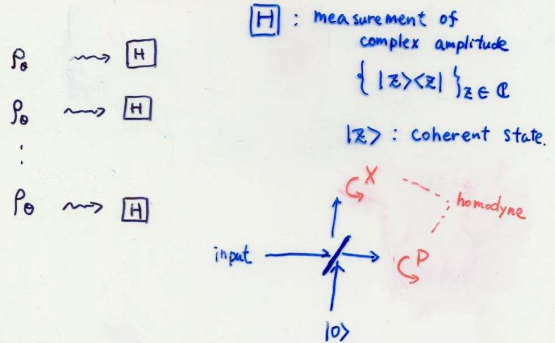 ρ_θ ⇝ H
ρ_θ ⇝ H
⋮
ρ_θ ⇝ H
H : measurement of
complex amplitude
{ |z><z| }_{z∈ℂ}
|z> : coherent state.
X
homodyne
input
P
|0>